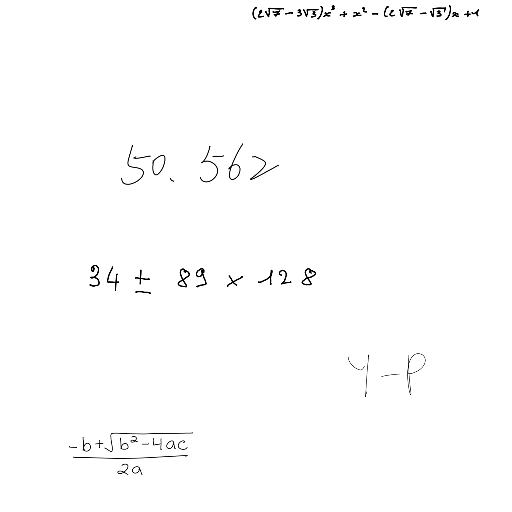 (2√7 - 3√3)x³ + x² - (2√7 - √3)x + 1
50.562
34 ± 89 × 128
Y - P
(-b + √(b² - 4ac)) / 2a